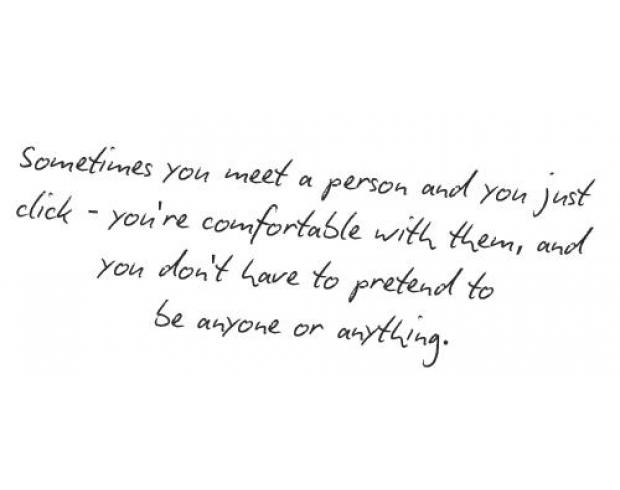 Sometimes you meet a person and you just
click - you're comfortable with them, and
you don't have to pretend to
be anyone or anything.